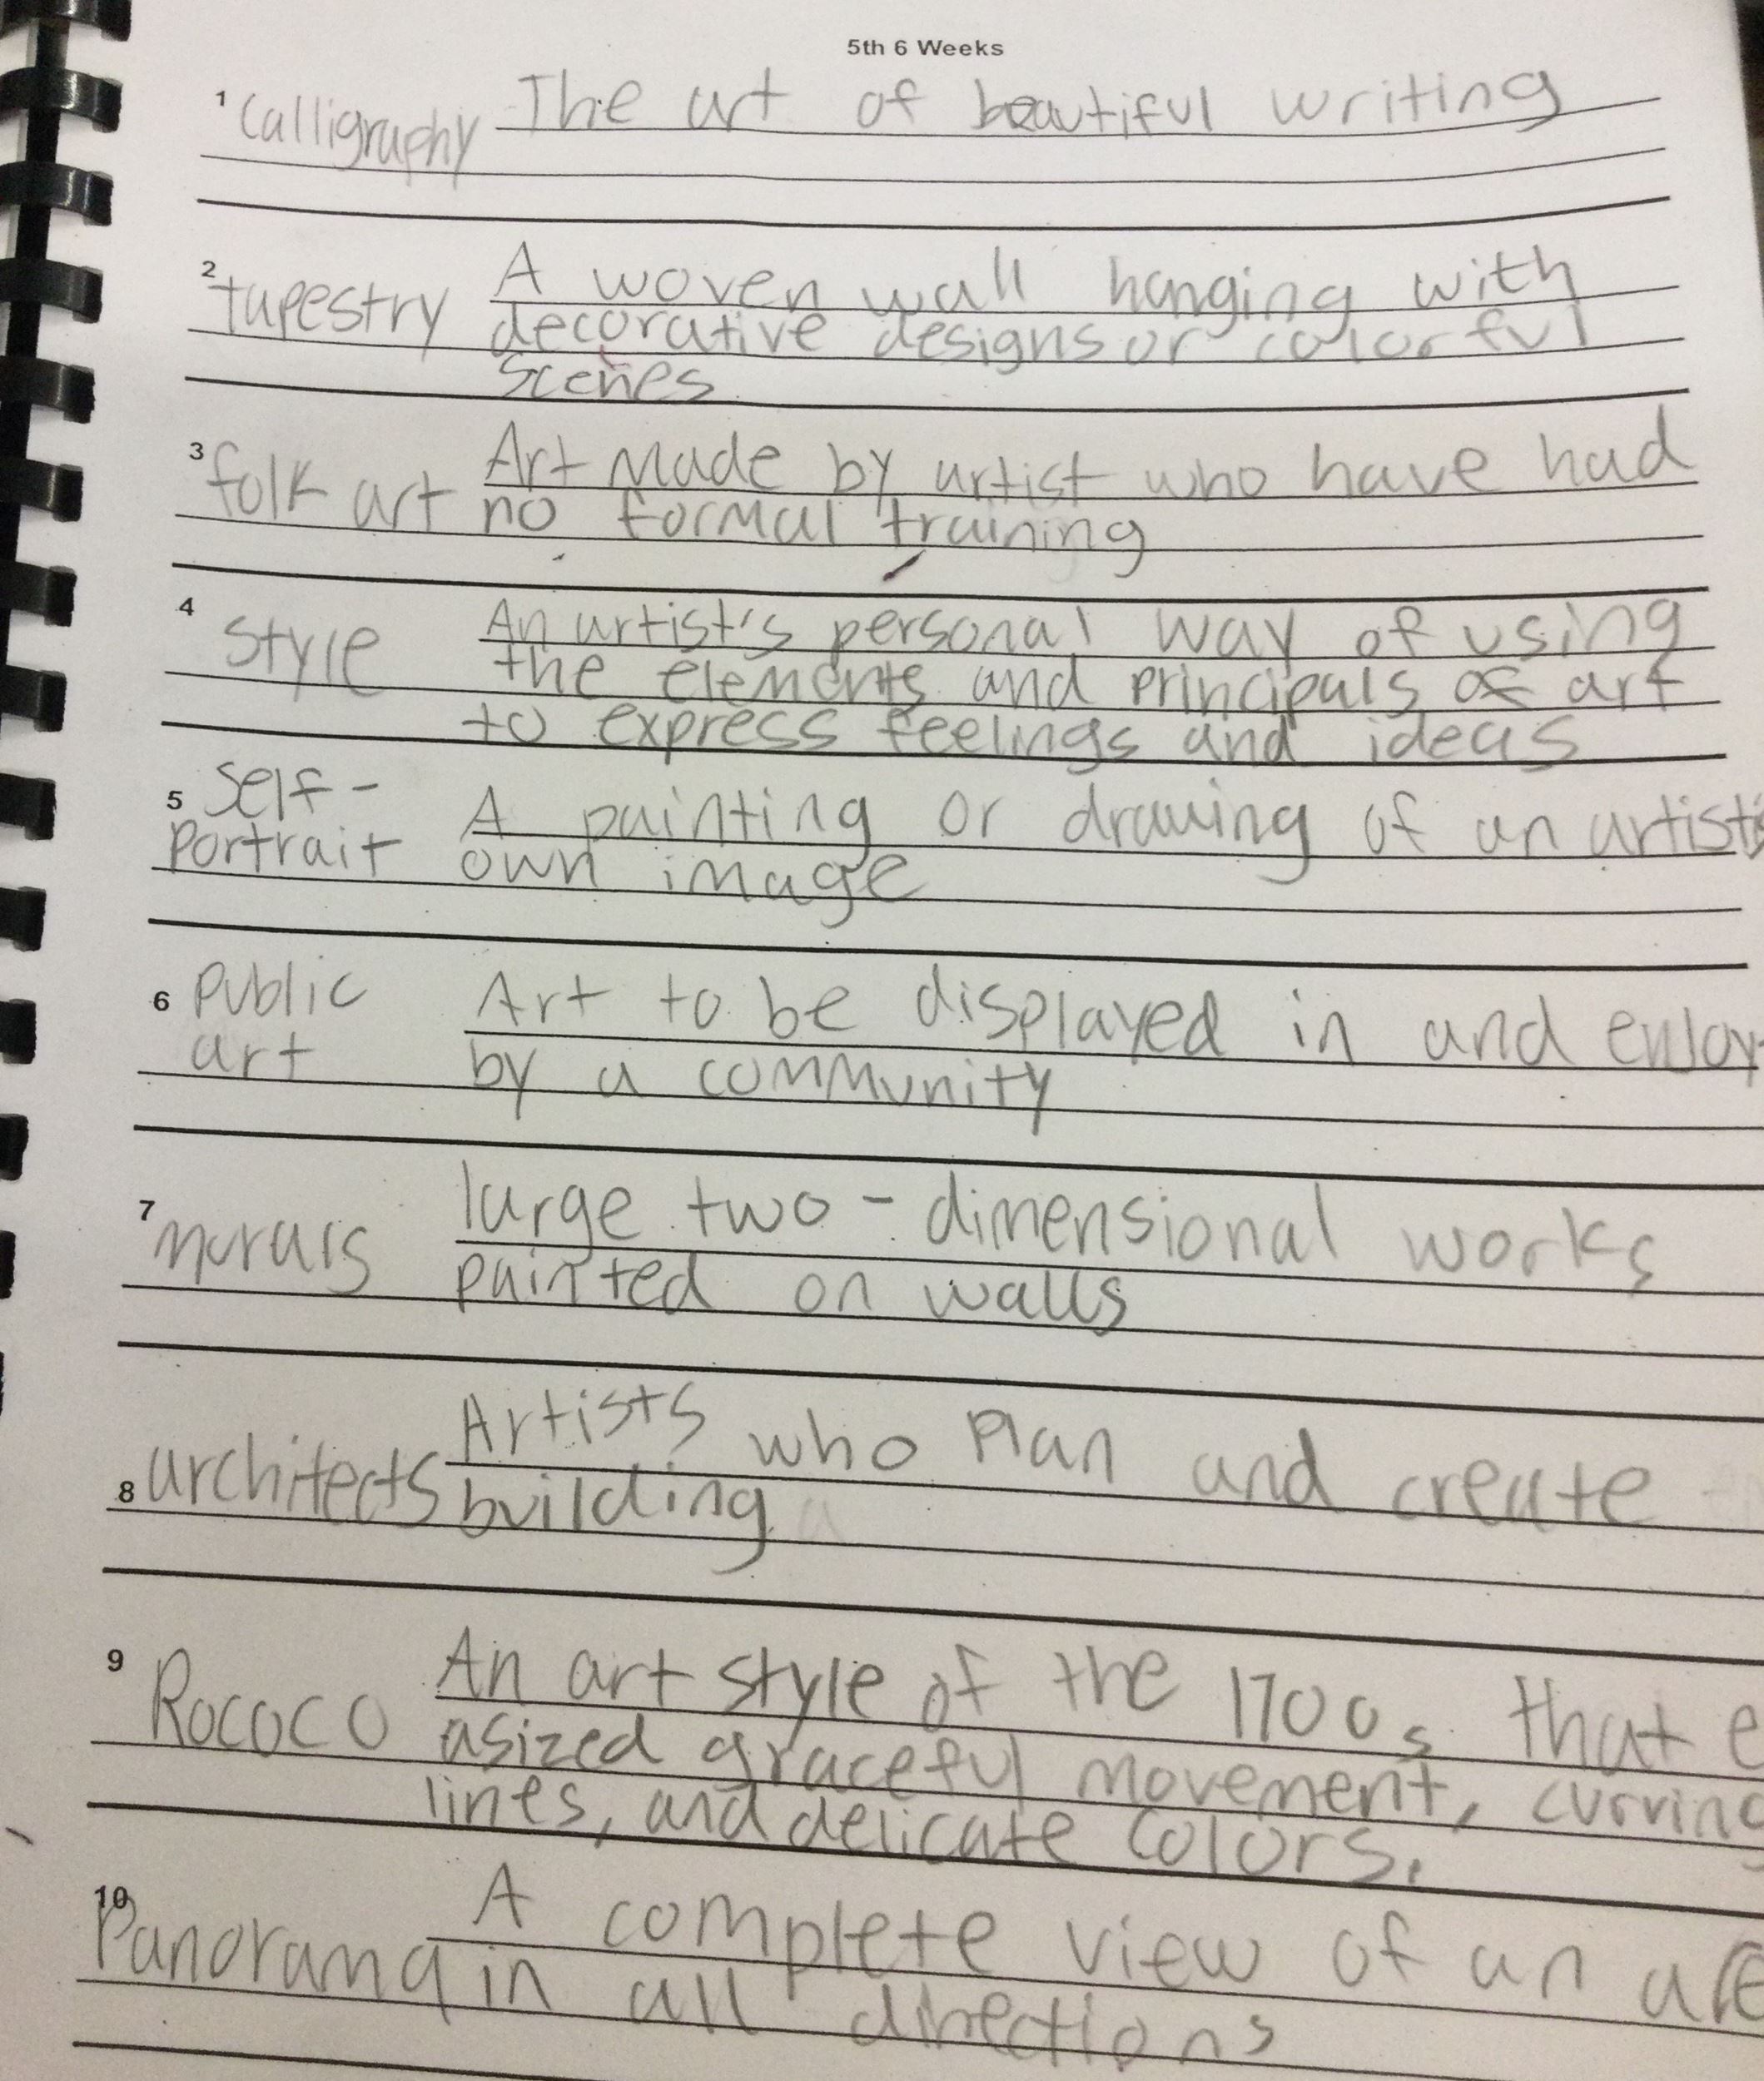 5th 6 Weeks
1 Calligraphy The art of beautiful writing
2 tapestry A woven wall hanging with
decorative designs or colorful
scenes
3 folk art Art made by artist who have had
no formal training
4 Style An artist's personal way of using
the elements and principals of art
to express feelings and ideas
5 Self-
Portrait A painting or drawing of an artist's
own image
6 Public Art to be displayed in and enjoy
art by a community
7 murals large two-dimensional works
painted on walls
8 architects Artists who Plan and create
building
9 Rococo An art style of the 1700s that e
asized graceful movement, curving
lines, and delicate colors.
10 Panorama A complete view of an are
in all directions